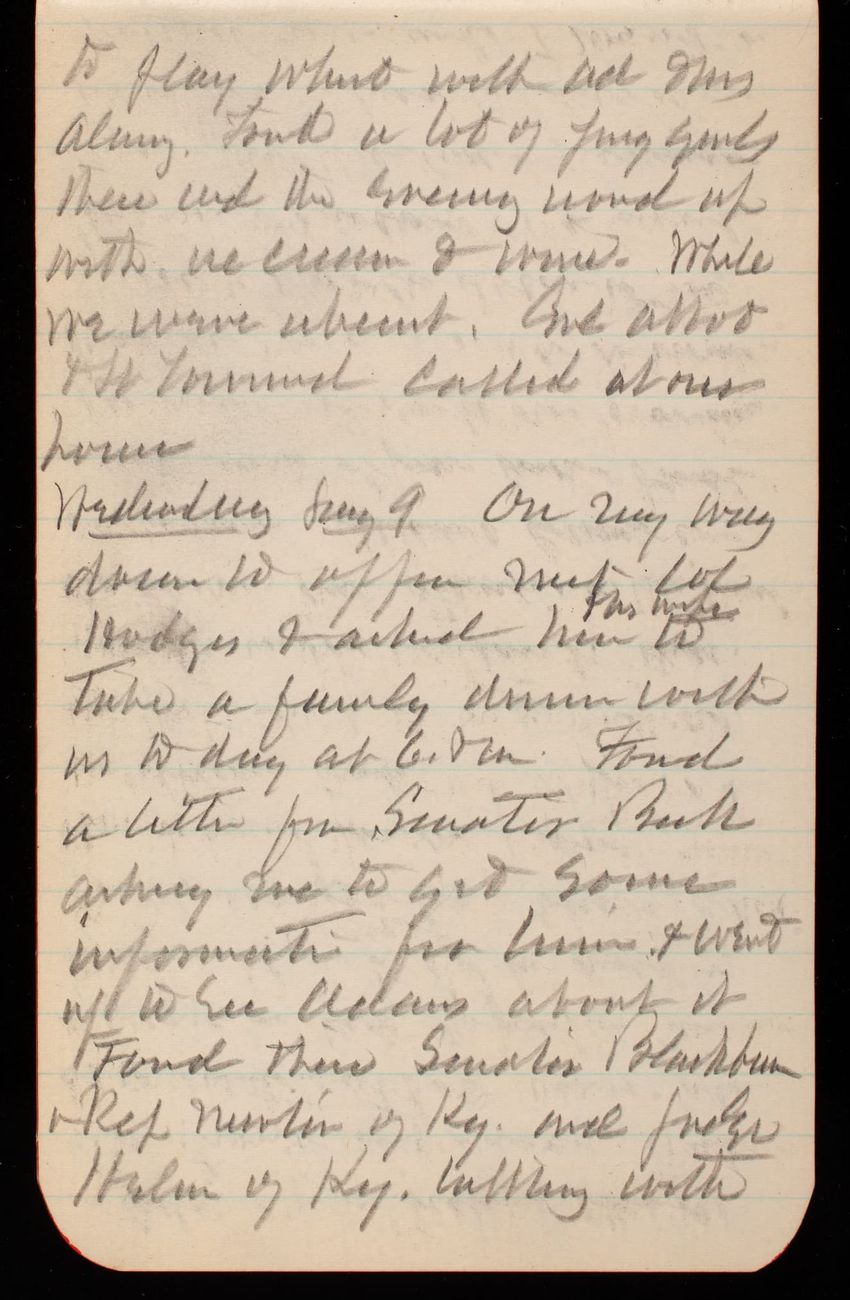 to play whist with
along. Found a lot of young girls
there and the evening wound up
with ice cream & wine. While
we were absent. Col Abbot
& called at our
house
Wednesday Jany 9 On my way
down to office met Col
& his wife
Hodges & asked him to
take a family dinner with
us to day at 6. P m. Found
a letter from Senator Beck
asking me to get some
information for him & went
up to see Adams about it
Found there Senator Blackburn
& Rep Newton of Ky. and Judge
Helm of Ky. talking with